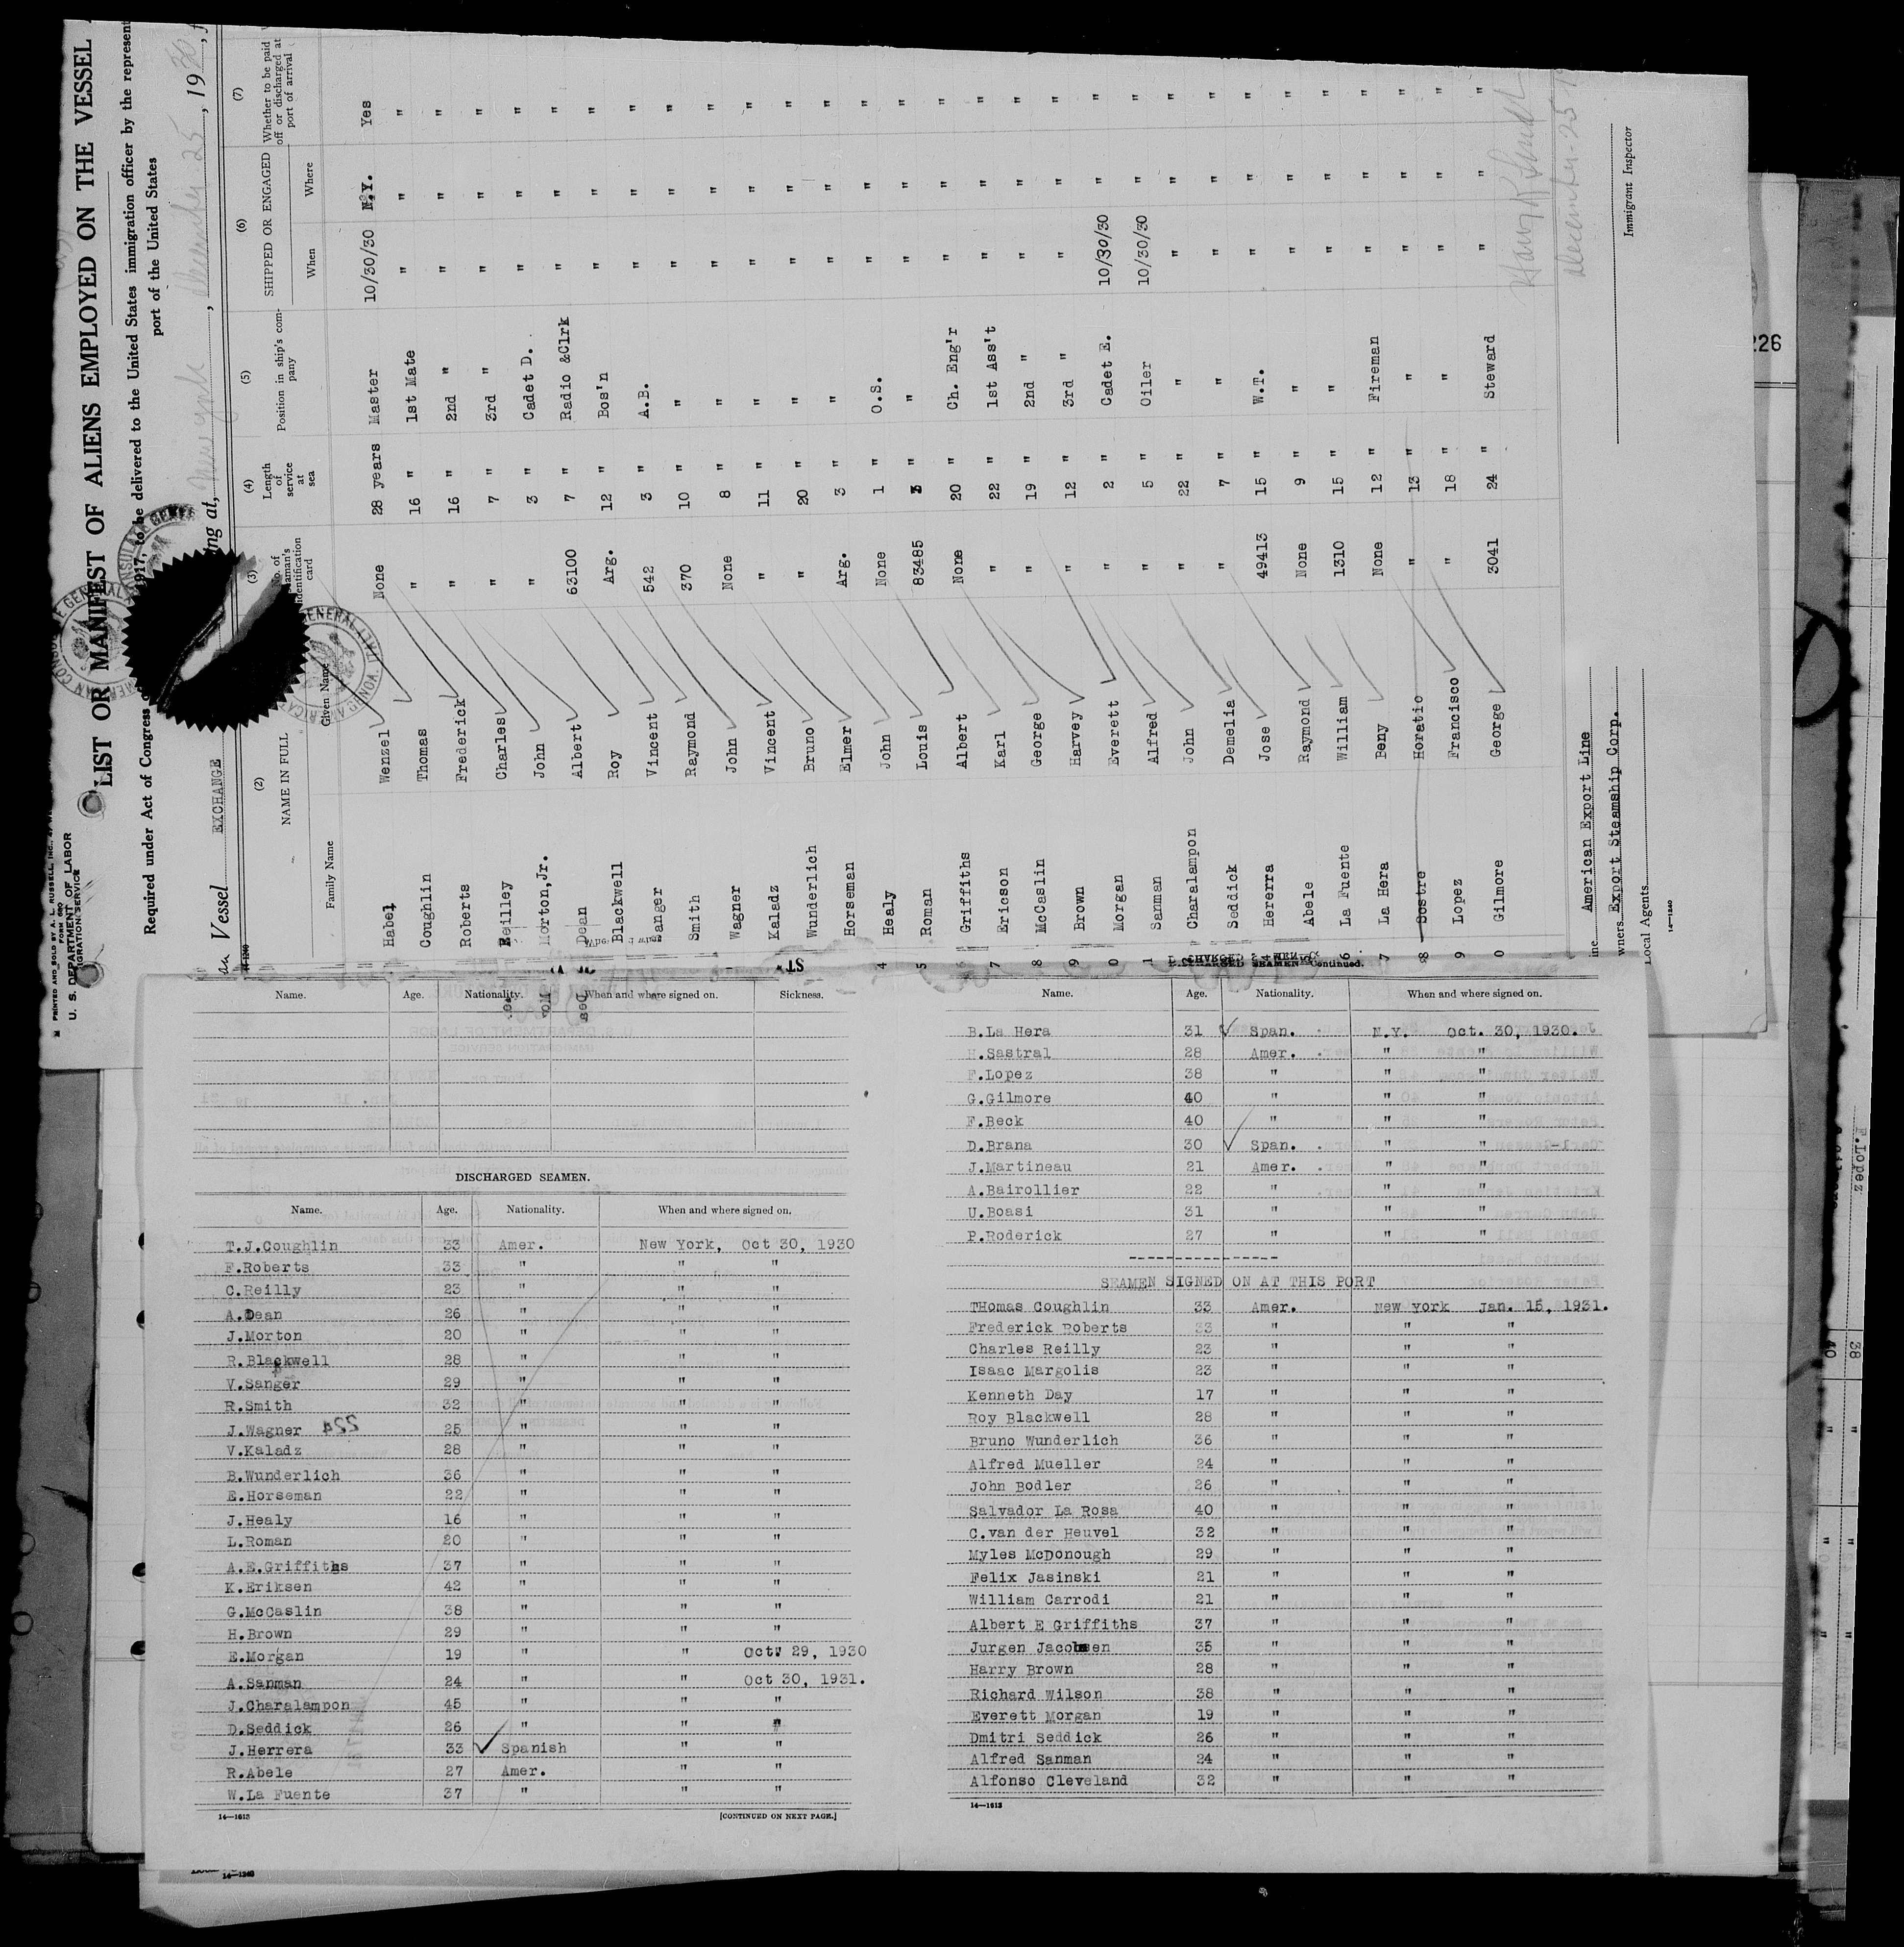 PRINTED AND SOLD BY A. L. RUSSELL, INC.
U. S. DEPARTMENT OF LABOR
IMMIGRATION SERVICE
LIST OR MANIFEST OF ALIENS EMPLOYED ON THE VESSEL
Required under Act of Congress 1917, to be delivered to the United States immigration officer by the represent
port of the United States
Vessel EXCHANGE ng at, New York, December 25, 1930
(2) (3) (4) (5) (6) (7)
NAME IN FULL No. of seaman's identification card Length of service at sea Position in ship's company SHIPPED OR ENGAGED Whether to be paid off or discharged at port of arrival
Family Name Given Name When Where
Habel Wenzel None 28 years Master 10/30/30 N.Y. Yes
Coughlin Thomas " 16 " 1st Mate " " "
Roberts Frederick " 16 " 2nd " " " "
Reilley Charles " 7 " 3rd " " " "
Morton,Jr. John " 3 " Cadet D. " " "
Dean Albert 63100 7 " Radio &Clrk " " "
Blackwell Roy Arg. 12 " Bos'n " " "
Sanger Vincent 542 3 " A.B. " " "
Smith Raymond 370 10 " " " " "
Wagner John None 8 " " " " "
Kaladz Vincent " 11 " " " " "
Wunderlich Bruno " 20 " " " " "
Horseman Elmer Arg. 3 " " " " "
4 Healy John None 1 " O.S. " " "
5 Roman Louis 83485 3 " " " " "
Griffiths Albert None 20 " Ch. Eng'r " " "
7 Ericson Karl " 22 " 1st Ass't " " "
8 McCaslin George " 19 " 2nd " " " "
9 Brown Harvey " 12 " 3rd " " " "
0 Morgan Everett " 2 " Cadet E. 10/30/30 " "
1 Sanman Alfred " 5 " Oiler 10/30/30 " "
Charalampon John " 22 " " " " "
Seddick Demelia " 7 " " " " "
Hererra Jose 49413 15 " W.T. " " "
Abele Raymond None 9 " " " " "
6 La Fuente William 1310 15 " " " " "
7 La Hera Beny None 12 " Fireman " " "
8 Sostre Horatio " 13 " " " " "
9 Lopez Francisco " 18 " " " " "
0 Gilmore George 3041 24 " Steward " " "
ine American Export Line
owners Export Steamship Corp.
Local Agents
14—1240
December-25
Immigrant Inspector
226
Name. Age. Nationality. When and where signed on. Sickness.
DISCHARGED SEAMEN.
Name. Age. Nationality. When and where signed on.
T.J.Coughlin 33 Amer. New York, Oct 30, 1930
F.Roberts 33 " " "
C.Reilly 23 " " "
A.Dean 26 " " "
J.Morton 20 " " "
R.Blackwell 28 " " "
V.Sanger 29 " " "
R.Smith 32 " " "
J.Wagner 25 " " "
V.Kaladz 28 " " "
B.Wunderlich 36 " " "
E.Horseman 22 " " "
J.Healy 16 " " "
L.Roman 20 " " "
A.E.Griffiths 37 " " "
K.Eriksen 42 " " "
G.McCaslin 38 " " "
H.Brown 29 " " "
E.Morgan 19 " " Oct. 29, 1930
A.Sanman 24 " " Oct 30, 1931.
J.Charalampon 45 " " "
D.Seddick 26 " " "
J.Herrera 33 Spanish " "
R.Abele 27 Amer. " "
W.La Fuente 37 " " "
14—1613 [CONTINUED ON NEXT PAGE.]
DISCHARGED SEAMEN—Continued.
Name. Age. Nationality. When and where signed on.
B.La Hera 31 Span. N.Y. Oct. 30, 1930.
H.Sastral 28 Amer. " "
F.Lopez 38 " " "
G.Gilmore 40 " " "
F.Beck 40 " " "
D.Brana 30 Span. " "
J.Martineau 21 Amer. " "
A.Bairollier 22 " " "
U.Boasi 31 " " "
P.Roderick 27 " " "
SEAMEN SIGNED ON AT THIS PORT
THomas Coughlin 33 Amer. New York Jan. 15, 1931.
Frederick Roberts 33 " " "
Charles Reilly 23 " " "
Isaac Margolis 23 " " "
Kenneth Day 17 " " "
Roy Blackwell 28 " " "
Bruno Wunderlich 36 " " "
Alfred Mueller 24 " " "
John Bodler 26 " " "
Salvador La Rosa 40 " " "
C.van der Heuvel 32 " " "
Myles McDonough 29 " " "
Felix Jasinski 21 " " "
William Carrodi 21 " " "
Albert E Griffiths 37 " " "
Jurgen Jacobsen 35 " " "
Harry Brown 28 " " "
Richard Wilson 38 " " "
Everett Morgan 19 " " "
Dmitri Seddick 26 " " "
Alfred Sanman 24 " " "
Alfonso Cleveland 32 " " "
14—1613
14—1240
F.Lopez 38
40